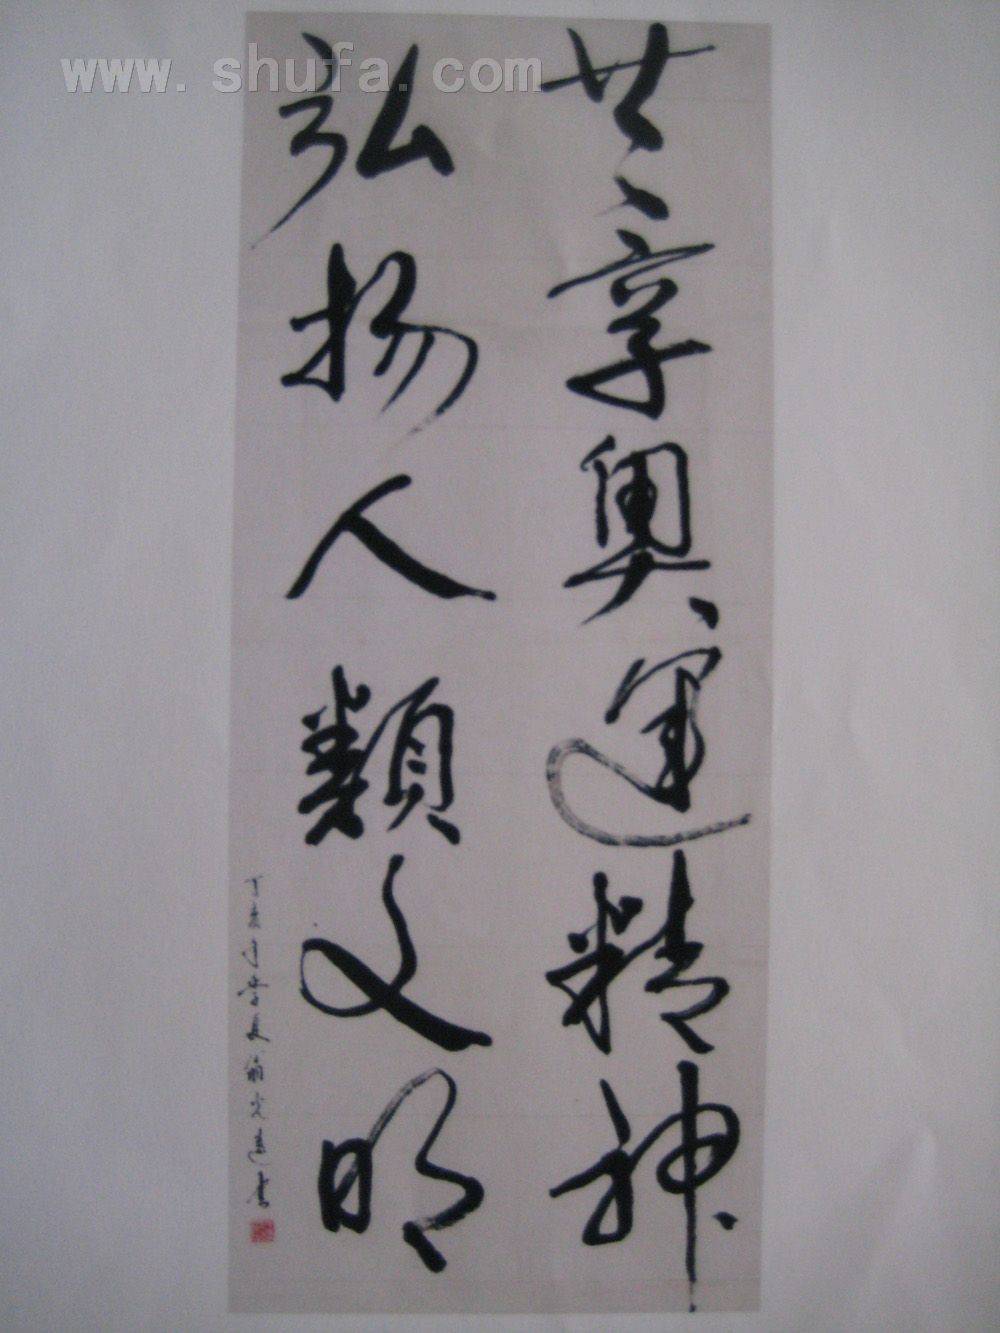 www.shufa.com
共享奥運精神
弘扬人類文明
丁亥年
翁光逵书